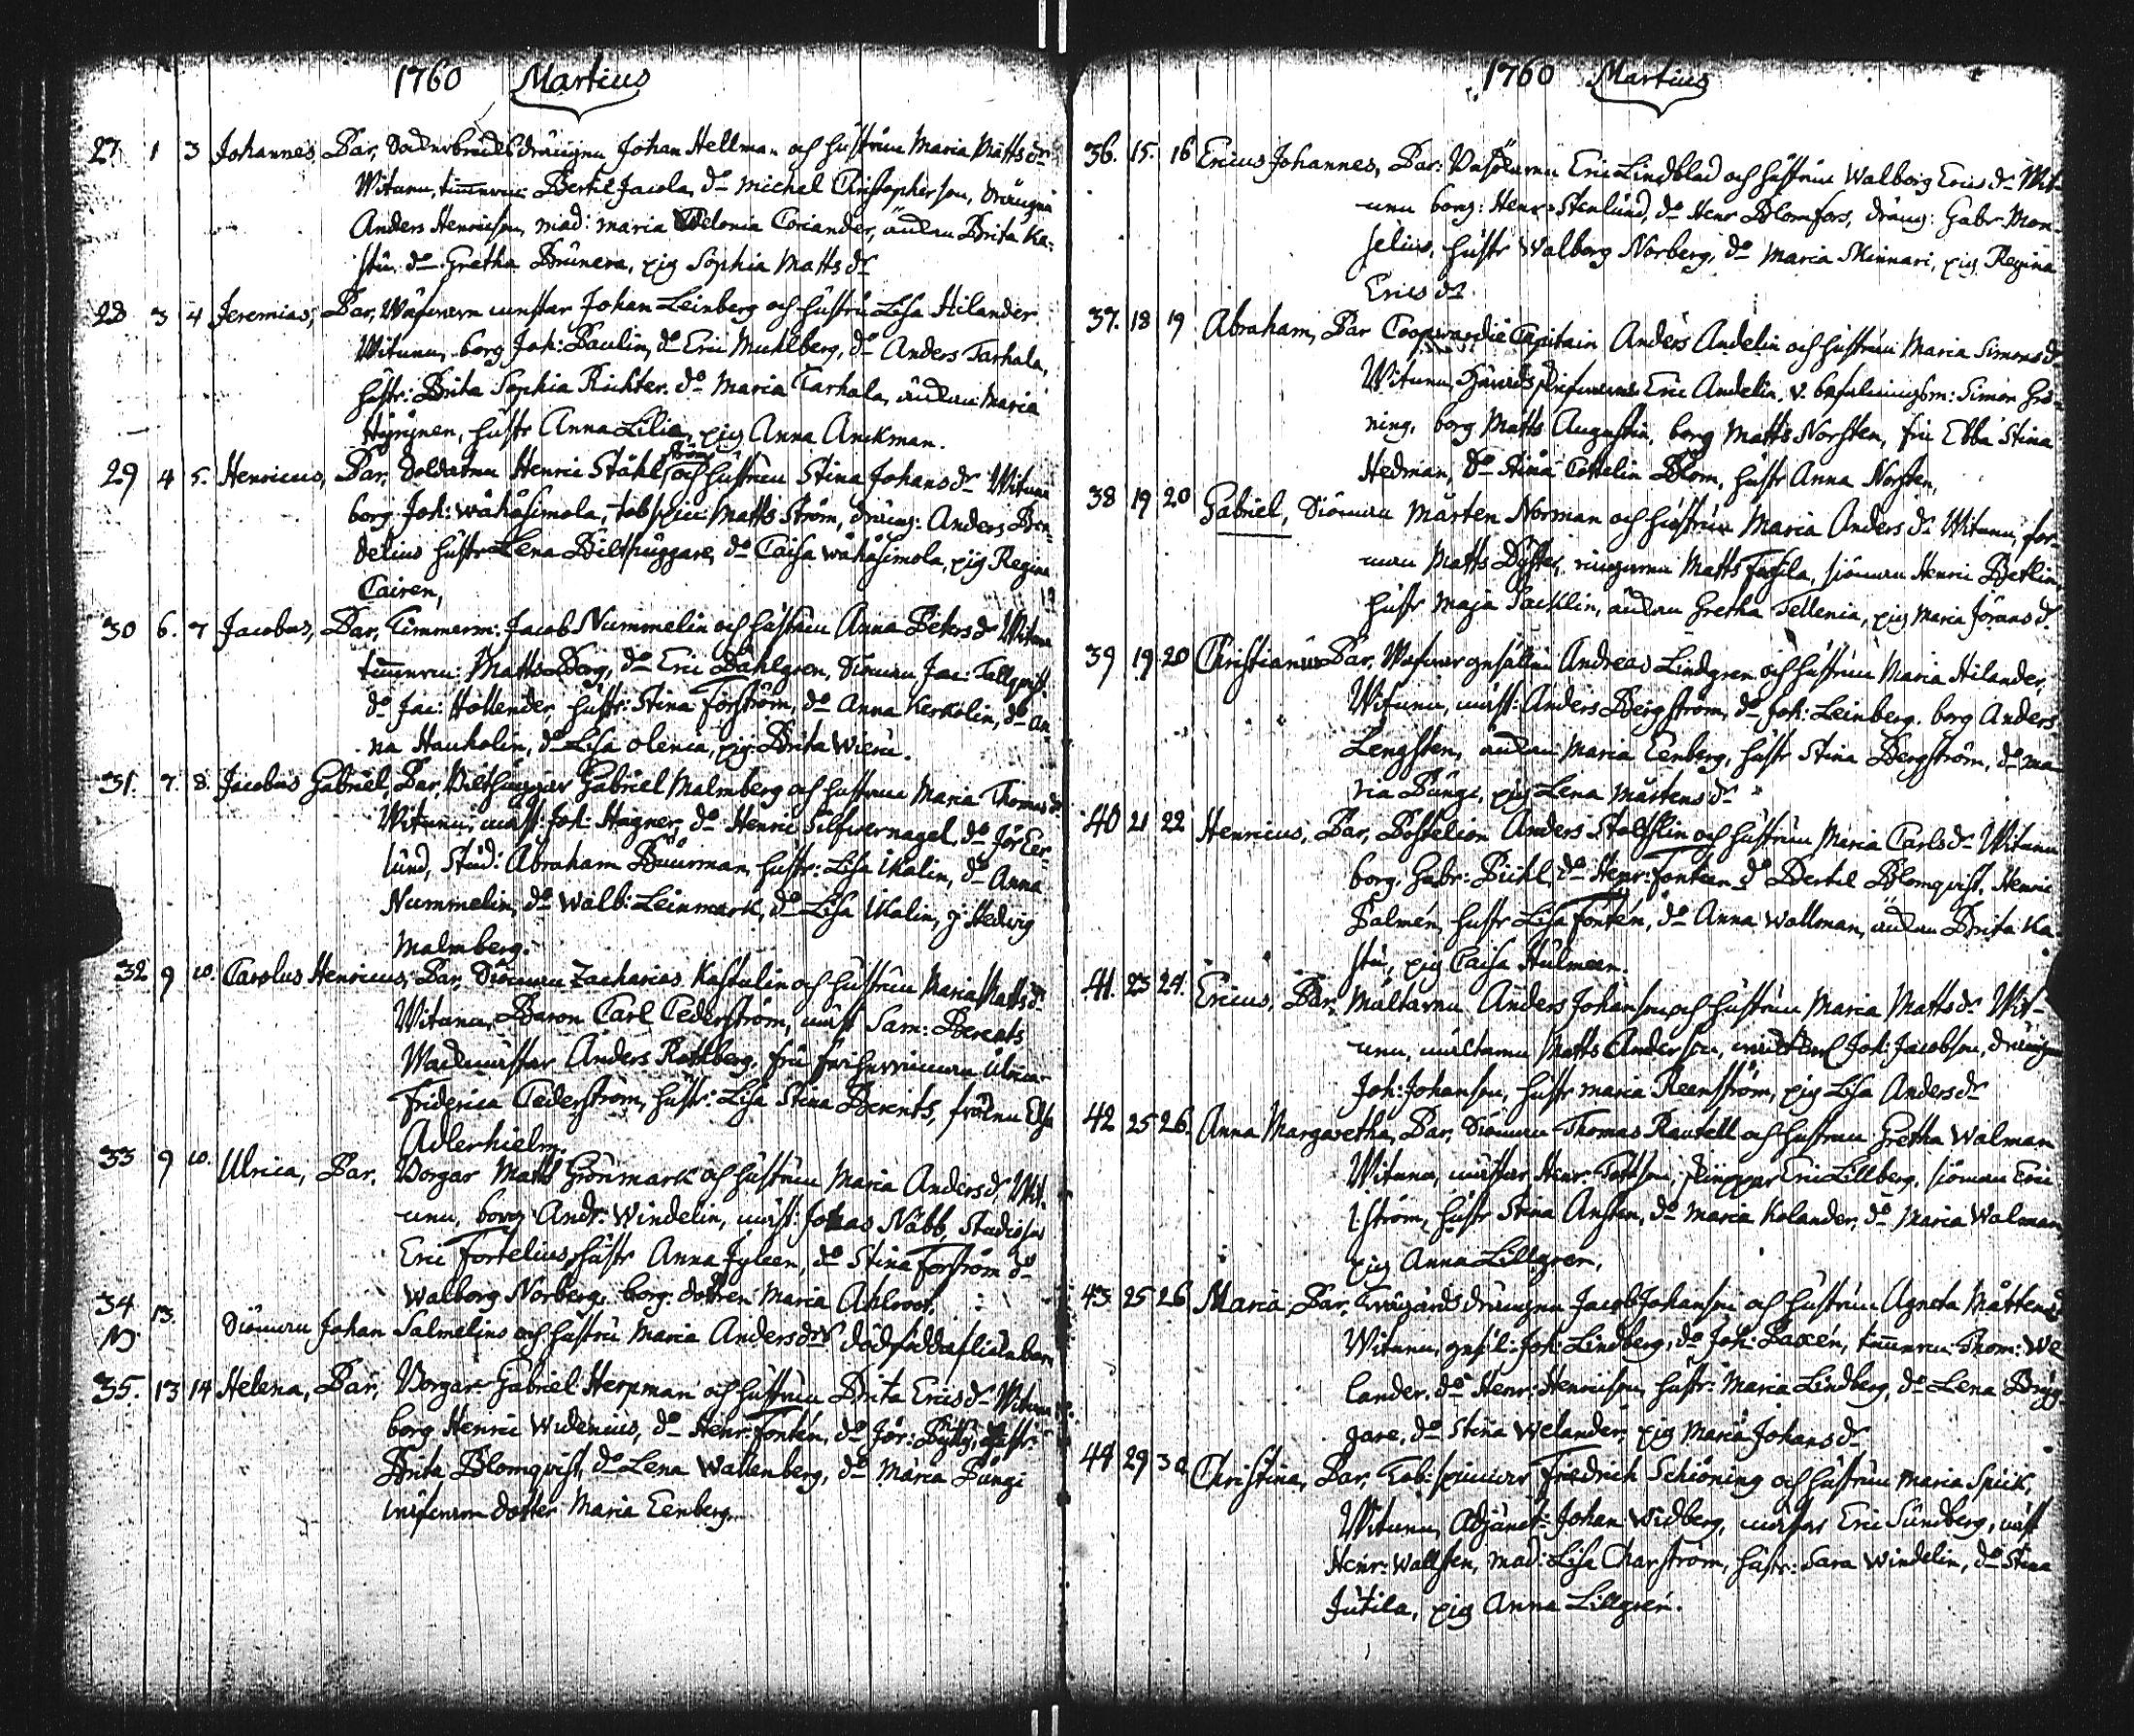 1760 Martius
27. 1 3 Johannes, Par, Johan Hellman och hustrun Maria Matts dr
Witnen, timmerm: Bertil Jacola, do Michel Christopherson, drängen
Anders Henricson, mad: Maria Melonia Coriander, änckan Brita Ka-
stu, do Gretha Brunera, pig Sophia Matts dr
28 3 4 Jeremias, Par, Johan Leinberg och hustru Lisa Hilander
Witnen, borg Joh: Paulin, do Eric Muhlberg, do Anders Tarhala,
hustr: Brita Sophia Richter, do Maria Tarhala, änckan Maria
Hyrynen, hustr Anna Lilia, pig Anna Anckman.
29 4 5. Henricus, Par, Soldaten Henric Ståhlström och hustrun Stina Johans dr Witnen
borg Joh: Wåhåsimola, Matts Ström, dräng: Anders Ben-
delius hustr Lena Bilthuggare, do Caisa Wåhåsimola, pig Regina
Cairen,
30 6. 7 Jacobus, Par, Timmerm: Jacob Nummelin och hustrun Anna Peters dr Witnen
timmerm: Matts Borg, do Eric Dahlgren, Siöman Jac: Tallqvist
do Jac: Hollender, hustr: Stina Forström, do Anna Kerkolin, do An-
na Haukolin, do Lisa Olenia, pig Brita Wieru.
31. 7. 8. Jacobus Gabriel, Par, Bilthuggar Gabriel Malmberg och hustrun Maria Thomas dr
Witnen, mäst: Joh: Hagner, do Henric Silfwernagel, do Jör Eer-
lund, Stud: Abraham Buurman, hustr: Lisa Ikalin, do Anna
Nummelin, do Walb: Leinmark, do Lisa Ikalin, j Hedvig
Malmberg.
32 9 10. Carolus Henricus, Par, Siöman Zacharias Kastulin och hustrun Maria Matts dr
Witnen, Baron Carl Cederström, mäst Sam: Berents
Anders Rothberg, fru friherrinnan Ulrica
Friderica Cederström, hustr: Lisa Stina Berents, frölen Elsa
Adlerhielm.
33 9 10. Ulrica, Par. Borgar Matts Grönmark och hustrun Maria Anders dr, Wit-
nen, borg Andr: Windelin, mäst: Johas Näbb, Studiosus
Eric Fortelius, hustr Anna Jyleen, do Stina Forström do
Walborg Norberg, borg. dottren Maria Ahlroos.
34 13. Siöman Johan Salmelius och hustru Maria Anders drs dödfödda flickebarn
N
35. 13 14 Helena, Par, Borgar Gabriel Herpman och hustrun Brita Erics dr Witnen
borg Henric Widenius, do Henr: Fontén, do Jör: Pytty, hustr:
Brita Blomqvist, do Lena Wallenberg, do Maria Pungi
dotter Maria Eenberg.
1760 Martius
36. 15. 16 Ericus Johannes, Par: Eric Lindblad och hustrun Walborg Erics dr Wit-
nen borg: Henr: Stenlund, do Henr Blomfors, dräng: Gabr Mon-
selius, hustr Walborg Norberg, do Maria Skinnari, pig Regina
Erics dr.
37. 18 19 Abraham, Par Coopvardie Capitain Anders Andelin och hustrun Maria Simons dr
Witnen, Eric Andelin, Simon Grö-
ning, borg Matts Augustin, borg Matts Norsten, fru Ebba Stina
Hedman, do Stina Cottelin Blom, hustr Anna Norsten,
38 19 20 Gabriel, Siöman Mårten Norman och hustrun Maria Anders dr Witnen, for-
man Matts Dyster, Matts Fagila, siöman Henric Betlin
hustr Maja Sacklin, änckan Gretha Tellenia, pig Maria Jörans dr
39 19. 20 Christianus Par, gesällen Andreas Lindgren och hustrun Maria Hilander,
Witnen, mäst: Anders Bergström, do Joh: Leinberg, borg Anders
Lengsten, änckan Maria Eenberg, hustr Stina Bergström, do Ma-
ria Pungi, pig Lena Mårtens dr
40 21 22 Henricus, Par, Postelion Anders Stolsslin och hustrun Maria Carls dr Witnen
borg. Gabr: Pihl, do Henr: Fonteen do Bertil Blomqvist, Henric
Palmén, hustr Lisa Fontén, do Anna Wallman, änckan Brita Ka-
stu, pig Caisa Hulmeen.
41. 23 24. Ericus, Par, Anders Johanson och hustrun Maria Matts dr Wit-
nen, Matts Anderson, Joh: Jacobson, drängen
Joh: Johanson, hustr Maria Reenström, pig Lisa Anders dr
42 25 26. Anna Margaretha, Par, Siöman Thomas Rautell och hustrun Gretha Walman
Witnen, mästar Henr: Tottson, Eric Lillberg, siöman Eric
Iström, hustr Stina Ansten, do Maria Kolander, do Maria Walman
pig Anna Lillgren,
43 25 26 Maria, Par, drängen Jacob Johanson och hustrun Agneta Mårtens dr
Witnen, gesäl: Joh: Lindberg, do Joh: Paxén, timmerm: Thom: We-
lander, do Henr: Henricson, hustr: Maria Lindberg, do Lena Bryg-
gare, do Stina Welander, pig Maria Johans dr
44 29 30 Christina, Par, Tob: spinnar Friedrich Schöning och hustrun Maria Spiik,
Witnen, Adjunct: Johan Widberg, mästar Eric Sundberg, mäst
Henr: Wallsten, mad: Lisa Charström, hustr: Sara Windelin, do Stina
Jutila, pig Anna Lillgrén.